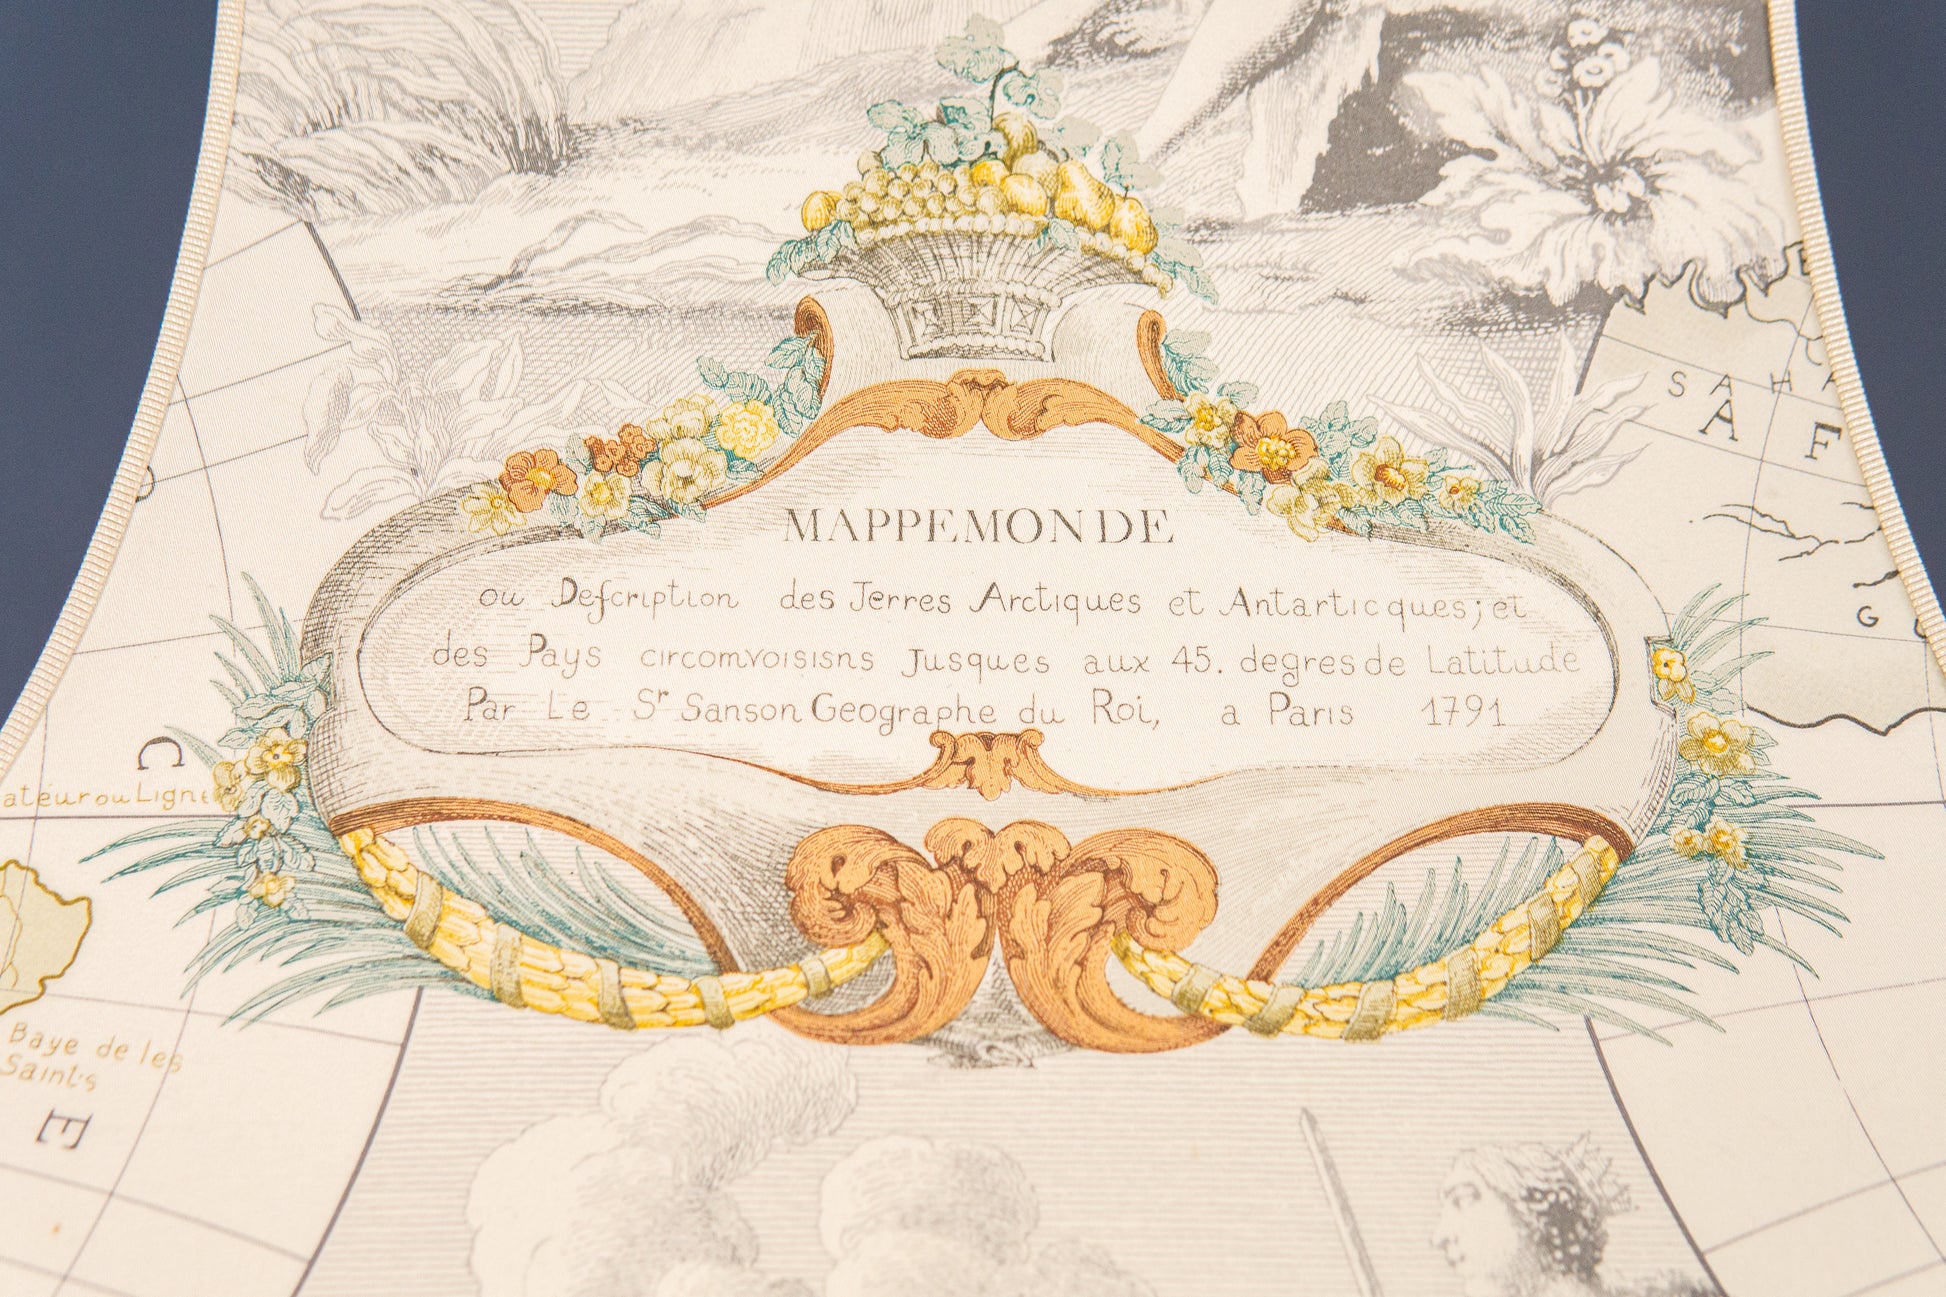 MAPPEMONDE
ou Defcription des Terres Arctiques et Antarticques; et
des Pays circomvoisisns Jusques aux 45. degres de Latitude
Par Le Sr Sanson Geographe du Roi, a Paris 1791
SAHA
A F
G
C
ateur ou Ligne
Baye de les
Saints
E